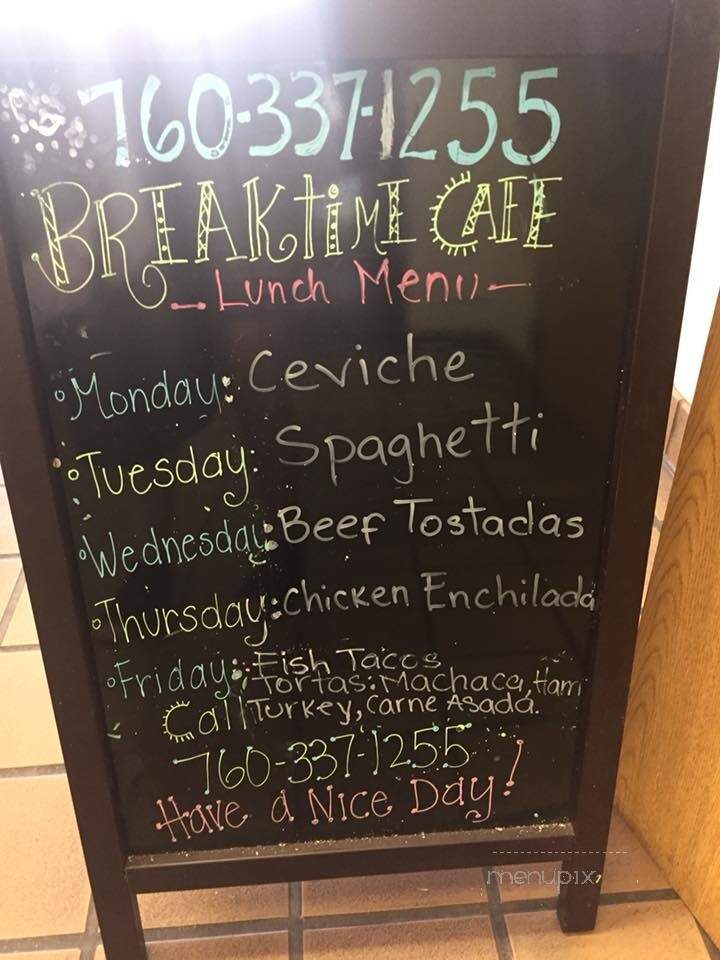 760-337-1255
BREAKTIME CAFE
- Lunch Menu -
Monday: Ceviche
Tuesday: Spaghetti
Wednesday: Beef Tostadas
Thursday: Chicken Enchilada
Friday: Fish Tacos
Tortas: Machaca, Ham
Turkey, Carne Asada.
Call
760-337-1255
Have a Nice Day!
menupix